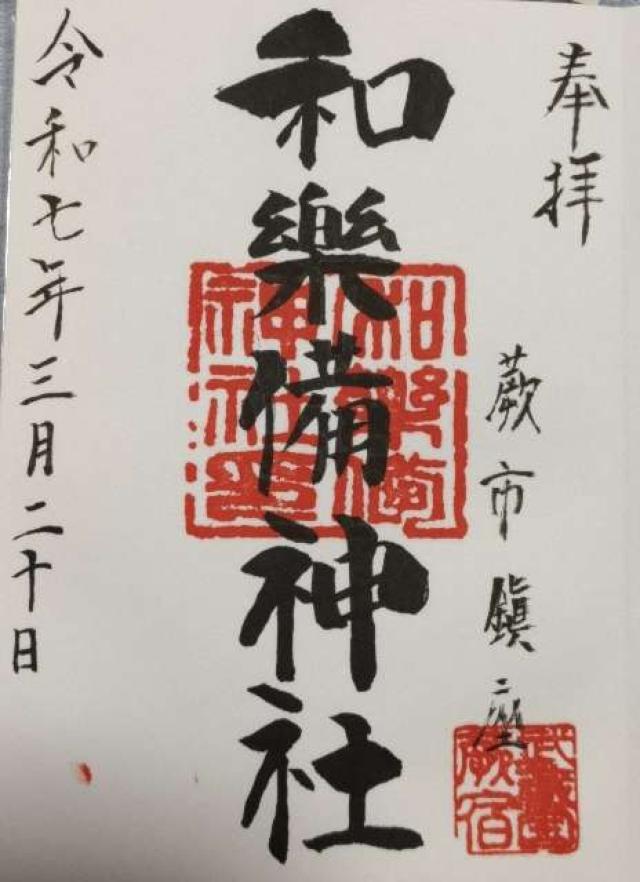 奉拝
蕨市鎮座
和樂備神社
和樂備
神社印
武蔵
蕨宿
令和七年三月二十日